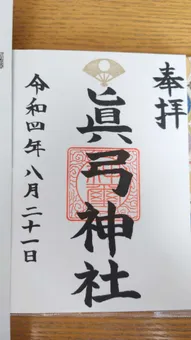 奉拝
眞弓神社
令和四年八月二十一日